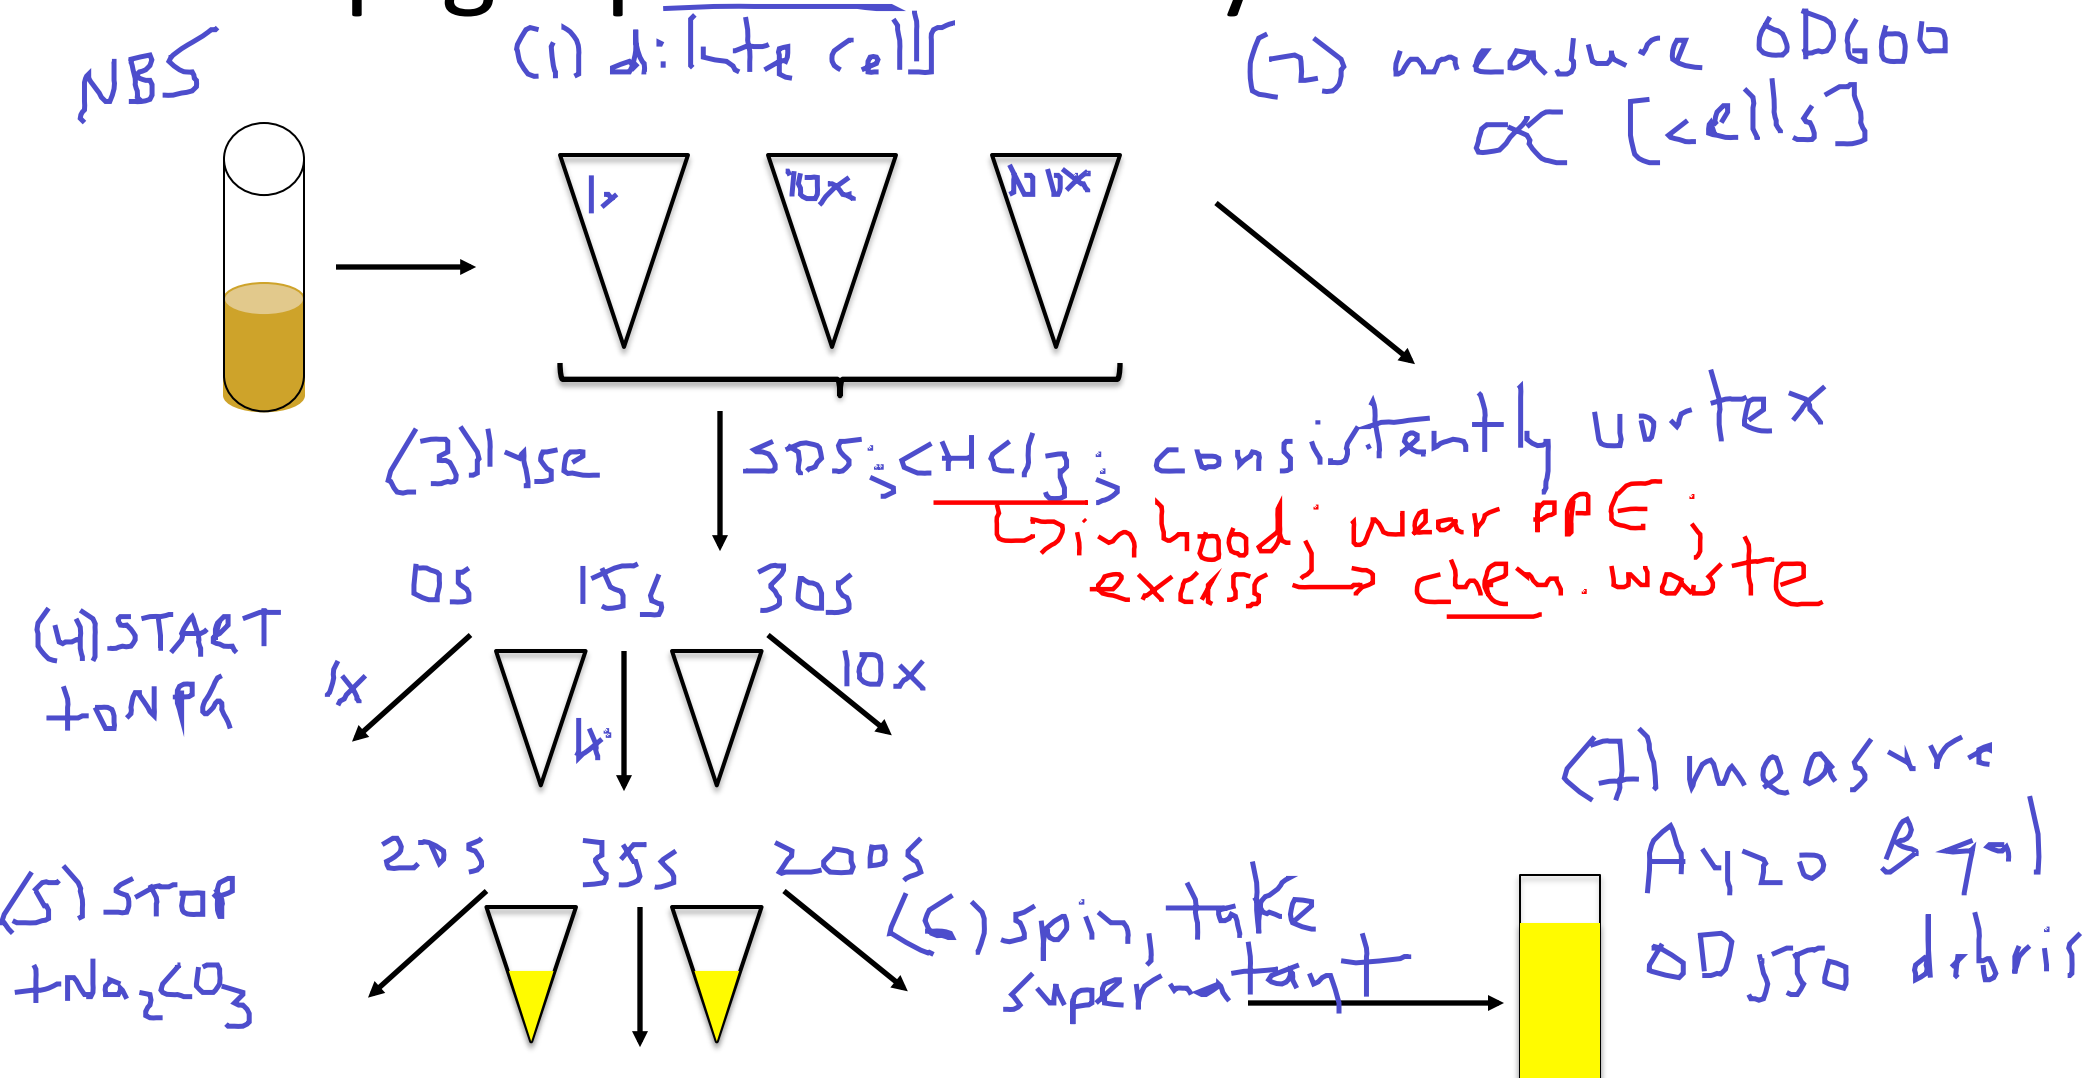 NB5
(1) dilute cells
(2) measure OD600
∝ [cells]
1x
10x
100x
(3) lyse
SDS; CHCl3; consistently vortex
↳ in hood; wear PPE;
excess → chem. waste
0s 15s 30s
(4) START
+ONPG
1x
10x
20s 35s 200s
(5) STOP
+Na2CO3
(6) spin, take
supernatant
(7) measure
A420 Bgal
OD550 debris